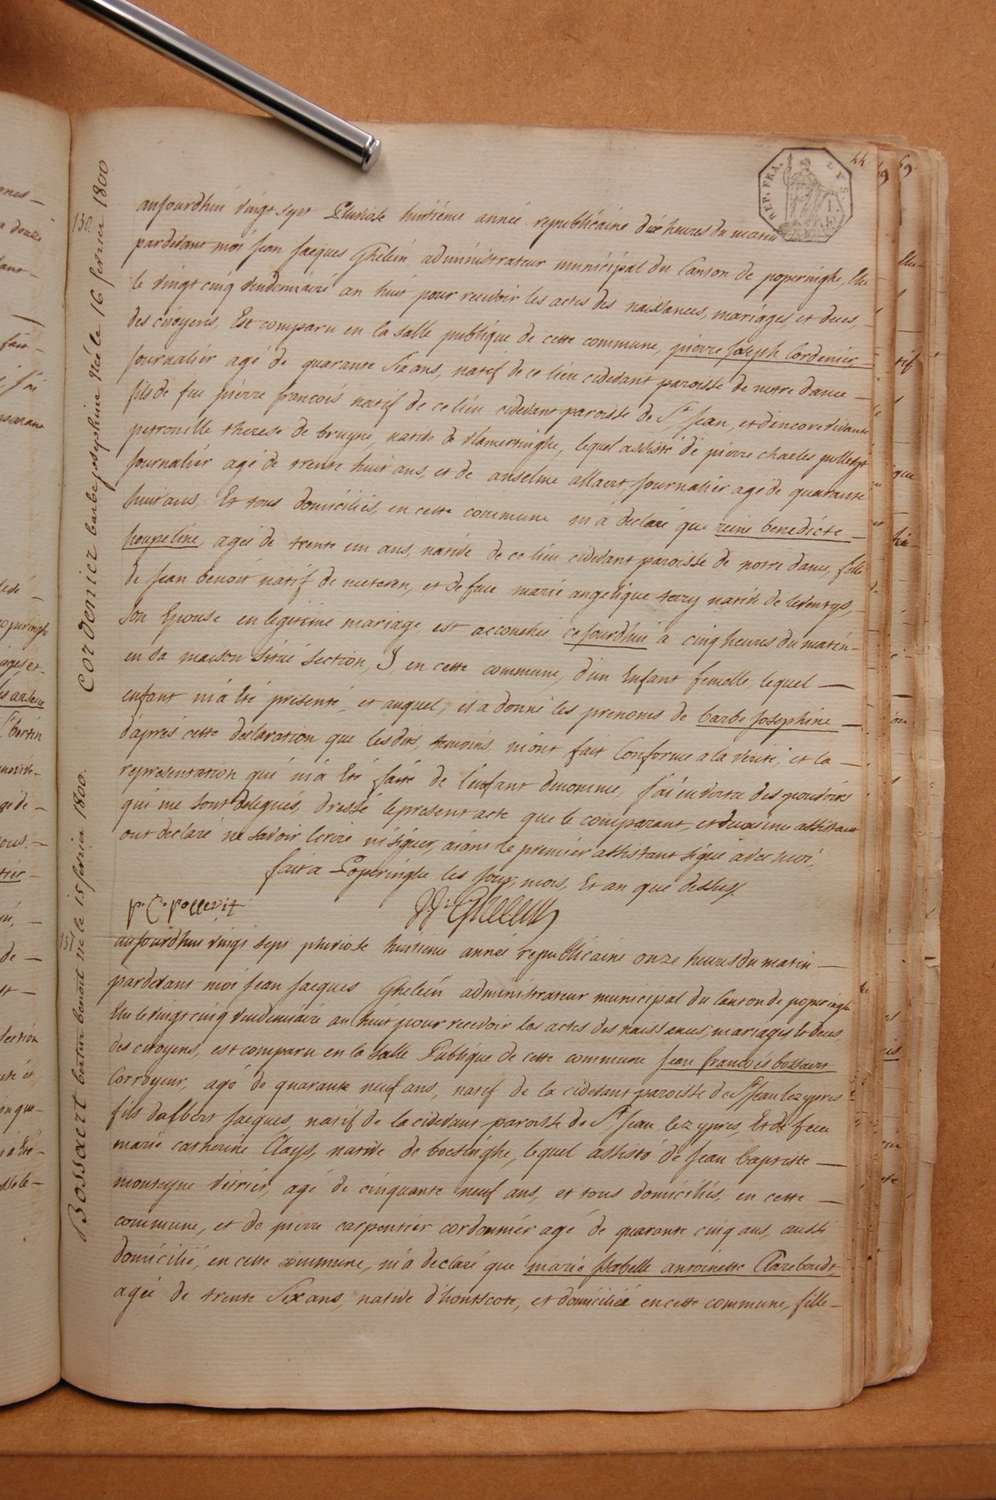 44
REP. FRA.
130.
aujourdhui vingt sept Pluviose huitiéme année republicaine dix heures du matin
pardevant moi Jean Jacques Ghelein administrateur municipal du Canton de poperinghe, Elu
le vingt cinq Vendemiaire an huit pour recevoir les actes des naissances, mariages et deces,
des citoyens, Est comparu en la salle publique de cette commune, pierre Joseph Cordenier,
Journalier agé de quarante Six ans, natif de ce lieu cidevant paroisse de notre dame
fils de feu pierre francois natif de ce lieu cidevant paroisse de St Jean, et d'encore vivante
petronille therese de bruyne, native de vlamertinghe, lequel assisté de pierre charles
Journalier agé de trente huit ans, et de anselme allaert Journalier agé de quarante
huit ans, Et tous domiciliés en cette commune m'a declaré que reine benedicte
houpeline, ageé de trente un ans, native de ce lieu cidevant paroisse de notre dame, fille
de Jean benoit natif de meteren, et de feue marie angelique terry native de
son Epouse en legitime mariage est accouchée cejourdhui a cinq heures du matin
en sa maison située section, en cette commune, d'un Enfant femelle, lequel
enfant m'a Eté présenté, et auquel, il a donné les prenoms de barbe Josephine
d'après cette déclaration que lesdits temoins m'ont fait Conforme a la verité, et la
representation qui m'a Eté faite de l'enfant denommé, J'ai en vertu des pouvoirs
qui me sont delegués, dressé le present acte que le comparant et deuxieme assistant
ont declaré ne savoir lecrre ni signer, aiant le premier assistant signé avec moi,
fait a Poperinghe les Jour, mois, Et an que dessus
J. J. Ghelein
131
aujourdhui vingt sept pluviose huitieme année republicaine onze heures du matin
pardevant moi Jean Jacques Ghelein administrateur municipal du Canton de poperinghe
Elu le vingt cinq Vendemiaire an huit pour recevoir les actes des naissances mariages et deces
des citoyens, est comparu en la salle Publique de cette commune Jean francois bossaert
Corroyeur, agé de quarante neuf ans, natif de la cidevant paroisse de St Jean lez ypres
fils dalbert Jacques, natif de la cidevant paroisse de St Jean lez ypres, Et de feue
marie catherine Clays, native de boesinghe, lequel assisté de Jean baptiste
monteyne agé de cinquante neuf ans, et tous domiciliés en cette
commune, et de pierre carpentier cordonnier agé de quarante cinq ans, aussi
domicilié, en cette commune, m'a declaré que marie Isabelle antoinette Clarebaudt
ageé de trente Six ans, native d'hontscote, et domiciliée en cette commune, fille
Cordenier barbe josephine née le 16 fevrier 1800
Bossaert benoit né le 15 fevrier 1800.